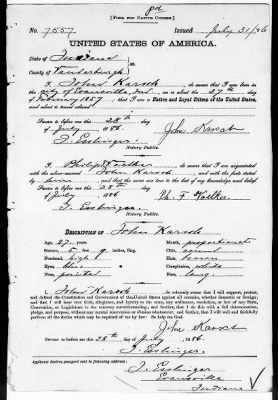 [FORM FOR NATIVE CITIZEN.]
No. 7557 Issued July 31/86
UNITED STATES OF AMERICA.
State of Indiana
County of Vanderburgh
I, John Karsch, do swear that I was born in the
city of Evansville, Ind., on or about the 27th day of
February 1857; that I am a Native and Loyal Citizen of the United States,
and about to travel abroad.
Sworn to before me this 28th
of July 1886. John Karsch
Notary Public.
I, do swear that I am acquainted
with the above-named John Karsch and with the facts stated
by him, and that the same are true to the best of my knowledge and belief.
Sworn to before me this 28th
of July 1886.
Notary Public.
DESCRIPTION OF John Karsch
Age, years. Mouth, proportionate
Stature, 5 feet, inches, Eng. Chin,
Forehead, high Hair, brown
Eyes, blue Complexion,
Nose, Face, long
I, John Karsch, do solemnly swear that I will support,
protect, and defend the Constitution and Government of the United States against all enemies, whether domestic or foreign;
and that I will bear true faith, allegiance, and loyalty to the same, any ordinance, resolution, or law of any State,
Convention, or Legislature to the contrary notwithstanding; and further, that I do this with a full determination,
pledge, and purpose, without any mental reservation or evasion whatsoever; and further, that I will well and faithfully
perform all the duties which may be required of me by law: So help me God.
John Karsch
Sworn to before me this 28th day of July 1886.
Notary Public.
Applicant desires passport sent to following address:
Evansville
Indiana